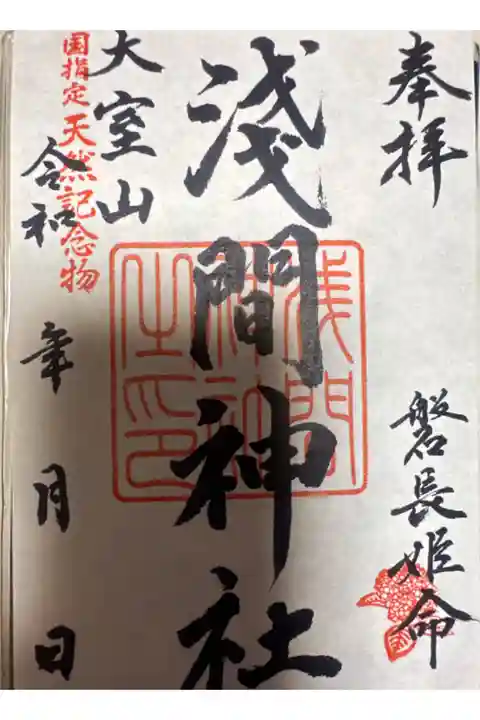 奉拝
磐長姫命
淺間神社
浅間神社之印
大室山
国指定
天然記念物
令和 年 月 日